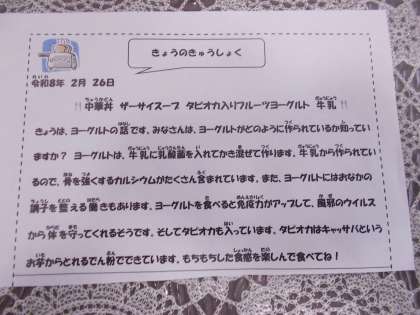 きょうのきゅうしょく
令和8年 2月 26日
!! 中華丼 ザーサイスープ タピオカ入りフルーツヨーグルト 牛乳 !!
きょうは、ヨーグルトの話です。みなさんは、ヨーグルトがどのように作られているか知ってい
ますか? ヨーグルトは、牛乳に乳酸菌を入れてかき混ぜて作ります。牛乳から作られてい
るので、骨を強くするカルシウムがたくさん含まれています。また、ヨーグルトにはおなかの
調子を整える働きもあります。ヨーグルトを食べると免疫力がアップして、風邪のウイルス
から体を守ってくれるそうです。そしてタピオカも入っています。タピオカはキャッサバという
お芋からとれるでん粉でできています。もちもちした食感を楽しんで食べてね!